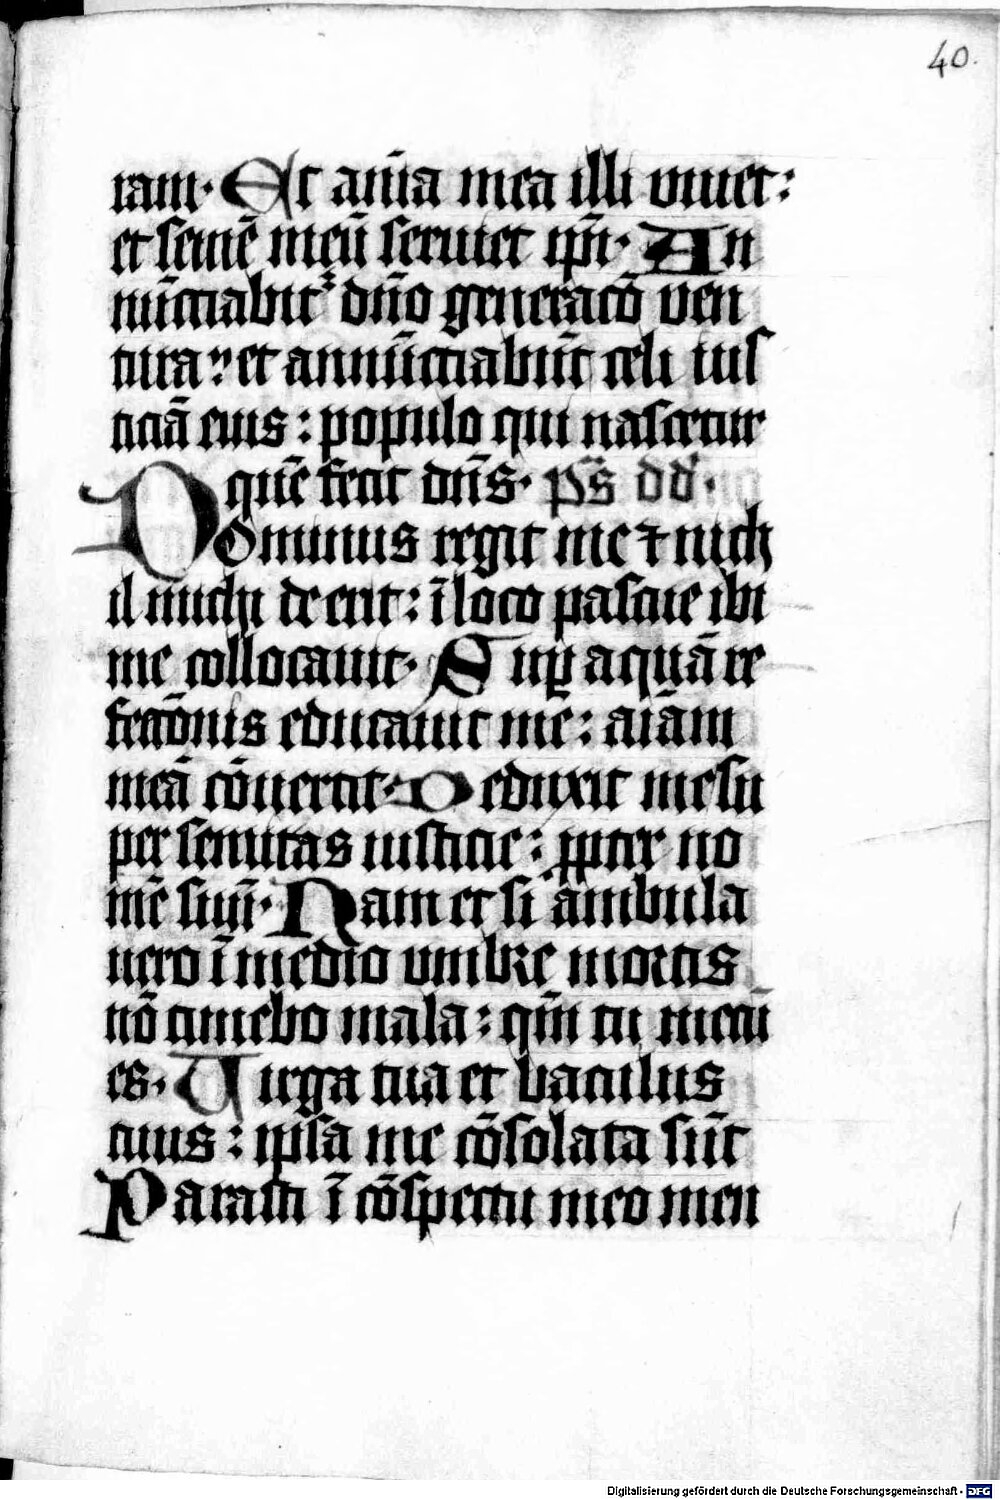 40.
ram. Et aīa mea illi viuet:
et semē meū seruiet ip̄i. An
nūctiabit᷑ dn̄o generacō ven
tura: et annūctiabūt celi ius
ticiā eius: populo qui nascetur
quē fecit dn̄s. p̄s dd.
Dominus regit me ⁊ nich
il michi deerit: ī loco pascue ibi
me collocauit. Suꝑ aquā re
fectiōnis educauit me: aīam
meā cōuertit. Deduxit me su
per semitas iusticie: ꝓpter no
mē suū. Nam et si ambula
uero ī medio vmbre mortis
nō timebo mala: qm̄ tu mecū
es. Uirga tua et baculus
tuus: ip̄sa me cōsolata sūt
Parasti ī cōspectu meo men
Digitalisierung gefördert durch die Deutsche Forschungsgemeinschaft - DFG